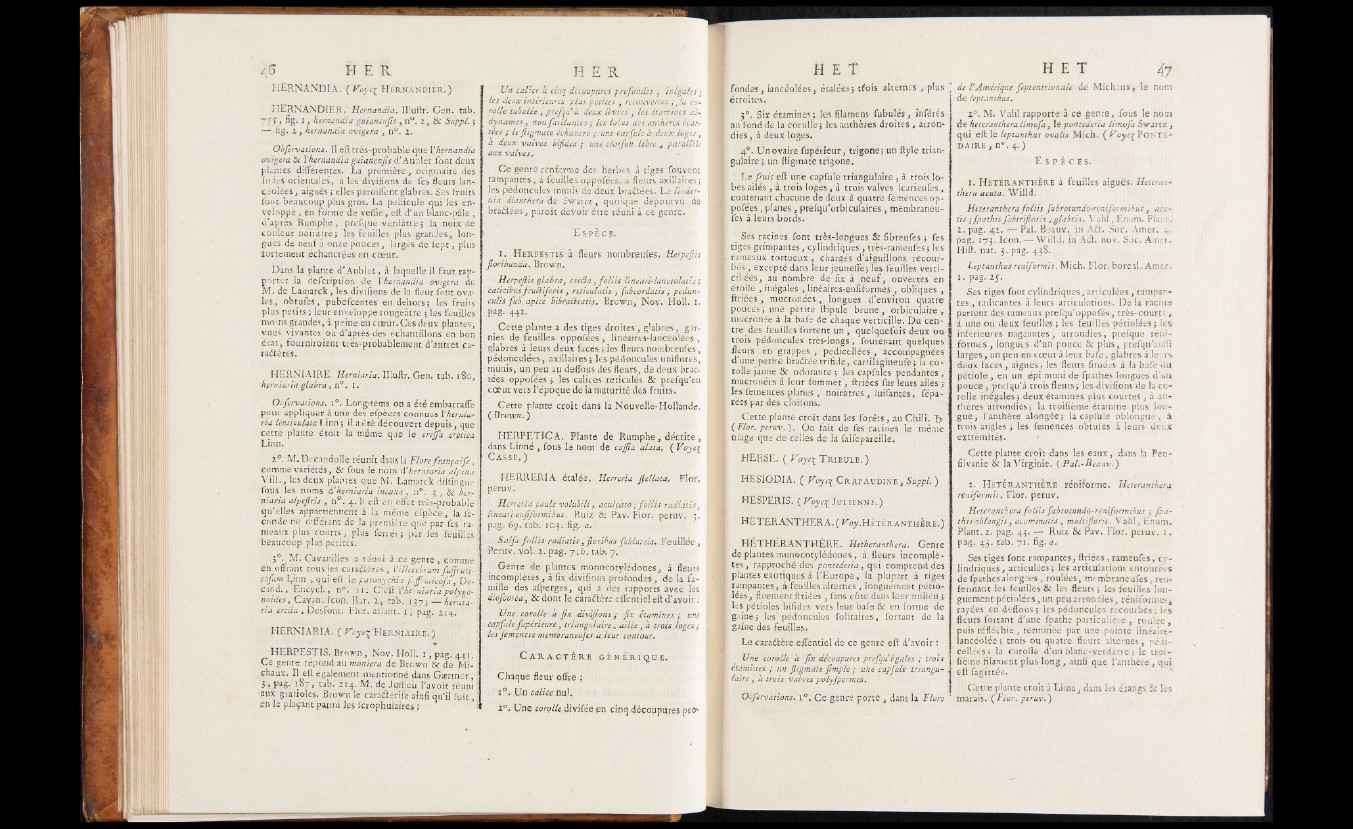 46 HER
HERNANDIA. (Voyez HERNANDIER.)
HERNANDIER. Hernandia. Illustr. Gen. tab.
755, fig. 1, hernandia guianensis, n°. 2, & Suppl. ;
— fig. 2, hernandia ovigera, n°. 2.
Observations. Il est très-probable que l'hernandia
ovigera & l'hernandia guianensis d'Aublet sont deux
plantes différentes. La première, originaire des
Indes orientales, a les divisions de ses fleurs lan-
céolées, aiguës ; elles paroissent glabres. Ses fruits
sont beaucoup plus gros. La pellicule qui les en-
veloppe, en forme de vessie, est d'un blanc-pâle,
d'après Rumphe, presque verdâtre ; la noix de
couleur noirâtre ; les feuilles plus grandes, lon-
gues de neuf à onze pouces, larges de sept, plus
fortement échancrées en cœur.
Dans la plante d'Aublet, à laquelle il faut rap-
porter la description de l'hernandia ovigera de
M. de Lamarck, les divisions de la fleur sont ova-
les, obtuses, pubescentes en dehors ; les fruits
plus petits ; leur enveloppe rougeâtre ; les feuilles
moins grandes, à peine en cœur. Ces deux plantes,
vues vivantes ou d'après des échantillons en bon
état, fourniroient très-probablement d'autres ca-
ractères.
HERNIAIRE. Herniaria. Illustr. Gen. tab. 180,
herniaria glabra, n°. 1.
Observations. 1°. Long-tems on a été embarrassé
pour appliquer à une des espèces connues l'hernia-
ria lenticulata Linn ; il a été découvert depuis, que
cette plante étoit la même que le cressa cretica
Linn.
2°. M. Decandolle réunit dans la Flore française,
comme variétés, & sous le nom d'herniaria alpina
Vill., les deux plantes que M. Lamarck distingue
sous les noms d'herniaria incana, n°. 3, & her-
niaria alpestris, n°. 4. Il est en effet très-probable
qu'elles appartiennent à la même espèce, la se-
conde ne différant de la première que par ses ra-
meaux plus courts, plus serrés ; par ses feuilles
beaucoup plus petites.
3°. M. Cavanilles a réuni à ce genre, comme
en offrant tous les caractères, l'illecebrum suffruti-
cosum Linn, qui est le paronychia suffruticosa, De-
cand., Encycl., n°. 11. C'est l'herniaria polygo-
noides, Cavan. Icon. Rar. 2, tab. 137 ; — hernia-
ria erecta, Desfont. Flor. atlant. 1, pag. 214.
HERNIARIA. (Voyez HERNIAIRE.)
HERPESTIS. Brown, Nov. Holl. 1, pag. 441.
Ce genre répond au moniera de Brown & de Mi-
chaux. Il est également mentionné dans Gærtner,
3, pag. 187, tab. 214. M. de Jussieu l'avoit réuni
aux gratioles. Brown le caractérise ainsi qu'il suit,
en le plaçant parmi les scrophulaires :
HER
Un calice à cinq découpures profondes, inégales ;
les deux intérieures plus petites, recouvertes ; la co-
rolle tubulée, presqu'à deux lèvres ; les étamines di-
dynames, non saillantes ; les lobes des anthères écar-
tées ; le stigmate échancré ; une capsule à deux loges,
à deux valves bifides ; une cloison libre, parallèle
aux valves.
Ce genre renferme des herbes à tiges souvent
rampantes, à feuilles opposées, à fleurs axillaires ;
les pédoncules munis de deux bractées. Le linder-
nia dianthera de Swartz, quoique dépourvu de
bractées, paroît devoir être réuni à ce genre.
ESPÈCE.
1. HERPESTIS à fleurs nombreuses. Herpestis
floribunda. Brown.
Herpestis glabra, erecta, foliis lineari-lanceolatis ;
calicibus fructiferis, reticulatis, subcordatis ; pedun-
culis sub apice bibracteatis. Brown, Nov. Holl. 1.
pag. 442.
Cette plante a des tiges droites, glabres, gar-
nies de feuilles opposées, linéaires-lancéolées,
glabres à leurs deux faces ; les fleurs nombreuses,
pédoncelées, axillaires ; les pédoncules uniflores,
munis, un peu au dessous des fleurs, de deux brac-
tées opposées ; les calices réticulés & presqu'en
cœur vers l'époque de la maturité des fruits.
Cette plante croît dans la Nouvelle-Hollande.
(Brown.)
HERPETICA. Plante de Rumphe, décrite,
dans Linné, sous le nom de cassia alata. (Voyez
CASSE.)
HERRERIA étalée. Herreria stellata, Flor.
peruv.
Herreria caule volubili, aculeato ; foliis radiatis,
lineari-ensiformibus. Ruiz & Pav. Flor. peruv. 3.
pag. 69. tab. 303. fig. a.
Salsa foliis radiatis, floribus subluteis. Feuillée,
Peruv. vol. 2. pag. 716. tab. 7.
Genre de plantes monocotylédones, à fleurs
incomplètes, à six divisions profondes, de la fa-
mille des asperges, qui a des rapports avec les
dioscorea, & dont le caractère essentiel est d'avoir :
Une corolle à six divisions ; six étamines ; une
capsule supérieure, triangulaire, ailée, à trois loges ;
les semences membraneuses à leur contour.
CARACTÈRE GÉNÉRIQUE.
Chaque fleur offre :
1°. Un calice nul.
2°. Une corolle divisée en cinq découpures pro-
HET
fondes, lancéolées, étalées ; trois alternes, plus
étroites.
3°. Six étamines ; les filamens subulés, insérés
au fond de la corolle ; les anthères droites, arron-
dies, à deux loges.
4°. Un ovaire supérieur, trigone ; un style trian-
gulaire ; un stigmate trigone.
Le fruit est une capsule triangulaire, à trois lo-
bes ailés, à trois loges, à trois valves scarieuses,
contenant chacune de deux à quatre semences op-
posées, planes, presqu'orbiculaires, membraneu-
ses à leurs bords.
Ses racines sont très-longues & fibreuses ; ses
tiges grimpantes, cylindriques, très-rameuses ; les
rameaux tortueux, chargés d'aiguillons recour-
bés, excepté dans leur jeunesse ; les feuilles verti-
cillées, au nombre de six à neuf, ouvertes en
étoile, inégales, linéaires-ensiformes, obliques,
striées, mucronées, longues d'environ quatre
pouces ; une petite stipule brune, orbiculaire,
mucronée à la base de chaque verticille. Du cen-
tre des feuilles sortent un, quelquefois deux ou
trois pédoncules très-longs, soutenant quelques
fleurs en grappes, pédicellées, accompagnées
d'une petite bractée trifide, cartilagineuse ; la co-
rolle jaune & odorante ; les capsules pendantes,
mucronées à leur sommet, striées sur leurs ailes ;
les semences planes, noirâtres, luisantes, sépa-
rées par des cloisons.
Cette plante croît dans les forêts, au Chili. ♄
(Flor. peruv.). On fait de ses racines le même
usage que de celles de la salsepareille.
HERSE. (Voyez TRIBULE.)
HESIODIA. (Voyez CRAPAUDINE, Suppl.)
HESPERIS. (Voyez JULIENNE.)
HETERANTHERA. (Voy. HÉTÉRANTHÈRE.)
HÉTHÉRANTHÈRE. Hetheranthera. Genre
de plantes monocotylédones, à fleurs incomplè-
tes, rapproché des pontederia, qui comprend des
plantes exotiques à l'Europe, la plupart à tiges
rampantes, à feuilles alternes, longuement pétio-
lées, finement striées, sans côte dans leur milieu ;
les pétioles bifides vers leur base & en forme de
gaîne ; les pédoncules solitaires, sortant de la
gaîne des feuilles.
Le caractère essentiel de ce genre est d'avoir :
Une corolle à six découpures presqu'égales ; trois
étamines ; un stigmate simple ; une capsule triangu-
laire, à trois valves polyspermes.
Observations. 1°. Ce genre porte, dans la Flore
HET 47
de l'Amérique septentrionale de Michaux, le nom
de leptanthus.
2°. M. Vahl rapporte à ce genre, sous le nom
de heteranthera limosa, le pontederia limosa Swartz,
qui est le leptanthus ovalis Mich. (Voyez PONTE-
DAIRE, n°. 4.)
ESPÈCES.
1. HÉTÉRANTHÈRE à feuilles aiguës. Heteran-
thera acuta. Willd.
Heteranthera foliis subrotundo-reniformibus, acu-
tis ; spathis subtrifloris, glabris. Vahl, Enum. Plant.
2. pag. 42. — Pal. Beauv. in Act. Soc. Amer. 4.
pag. 173. Icon. — Willd. in Act. nov. Soc. Amer.
Hist. nat. 3. pag. 438.
Leptanthus reniformis. Mich. Flor. boreal. Amer.
1. pag. 25.
Ses tiges sont cylindriques, articulées, rampan-
tes, radicantes à leurs articulations. De la racine
partent des rameaux presqu'opposés, très-courts,
à une ou deux feuilles ; les feuilles pétiolées ; les
inférieures nageantes, arrondies, presque réni-
formes, longues d'un pouce & plus, presqu'aussi
larges, un peu en cœur à leur base, glabres à leurs
deux faces, aiguës ; les fleurs situées à la base du
pétiole, en un épi muni de spathes longues d'un
pouce, presqu'à trois fleurs ; les divisions de la co-
rolle inégales ; deux étamines plus courtes, à an-
thères arrondies ; la troisième étamine plus lon-
gue, l'anthère alongée ; la capsule oblongue, à
trois angles ; les semences obtuses à leurs deux
extrémités.
Cette plante croît dans les eaux, dans la Pen-
silvanie & la Virginie. (Pal.-Beauv.)
2. HÉTÉRANTHÈRE réniforme. Heteranthera
reniformis. Flor. peruv.
Heteranthera foliis subrotundo-reniformibus ; spa-
this oblongis, acuminatis, multifloris. Vahl, Enum.
Plant. 2. pag. 43. — Ruiz & Pav. Flor. peruv. 1.
pag. 43. tab. 71. fig. a.
Ses tiges sont rampantes, striées, rameuses, cy-
lindriques, articulées ; les articulations entourées
de spathes alongées, roulées, membraneuses, ren-
fermant les feuilles & les fleurs ; les feuilles lon-
guement pétiolées, un peu arrondies, réniformes,
rayées en dessous ; les pédoncules recourbés ; les
fleurs sortant d'une spathe particulière, roulée,
puis réfléchie, terminée par une pointe linéaire-
lancéolée ; trois ou quatre fleurs alternes, pédi-
cellées ; la corolle d'un blanc-verdâtre ; le troi-
sième filament plus long, ainsi que l'anthère, qui
est sagittée.
Cette plante croît à Lima, dans les étangs & les
marais. (Flor. peruv.)